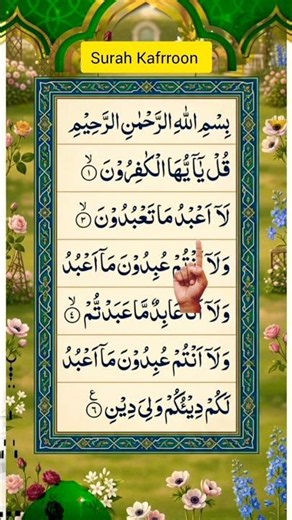 Surah Kafrroon
بِسْمِ اللهِ الرَّحْمٰنِ الرَّحِيْمِ
قُلْ يٰٓاَيُّهَا الْكٰفِرُوْنَ ۙ﴿۱﴾
لَآ اَعْبُدُ مَا تَعْبُدُوْنَ ۙ﴿۲﴾
وَلَآ اَنْتُمْ عٰبِدُوْنَ مَآ اَعْبُدُ
وَلَآ اَنَا عَابِدٌ مَّا عَبَدْتُّمْ ۙ﴿۴﴾
وَلَآ اَنْتُمْ عٰبِدُوْنَ مَآ اَعْبُدُ
لَكُمْ دِيْنُكُمْ وَلِيَ دِيْنِ ﴿۶﴾ ع